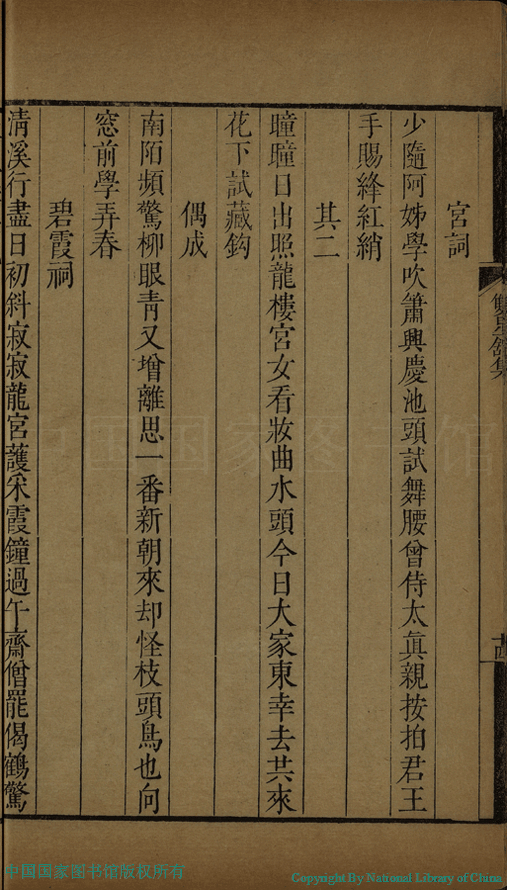 宮詞
少隨阿姊學吹簫興慶池頭試舞腰曾侍太眞親按拍君王
手賜絳紅綃
其二
曈曈日出照龍樓宮女看妝曲水頭今日大家東幸去共來
花下試藏鈎
偶成
南陌頻驚柳眼靑又增離思一番新朝來却怪枝頭鳥也向
窓前學弄春
碧霞祠
淸溪行盡日初斜寂寂龍宮護采霞鐘過午齋僧罷偈鶴驚
中国国家图书馆
中国国家图书馆版权所有
Copyright By National Library of China